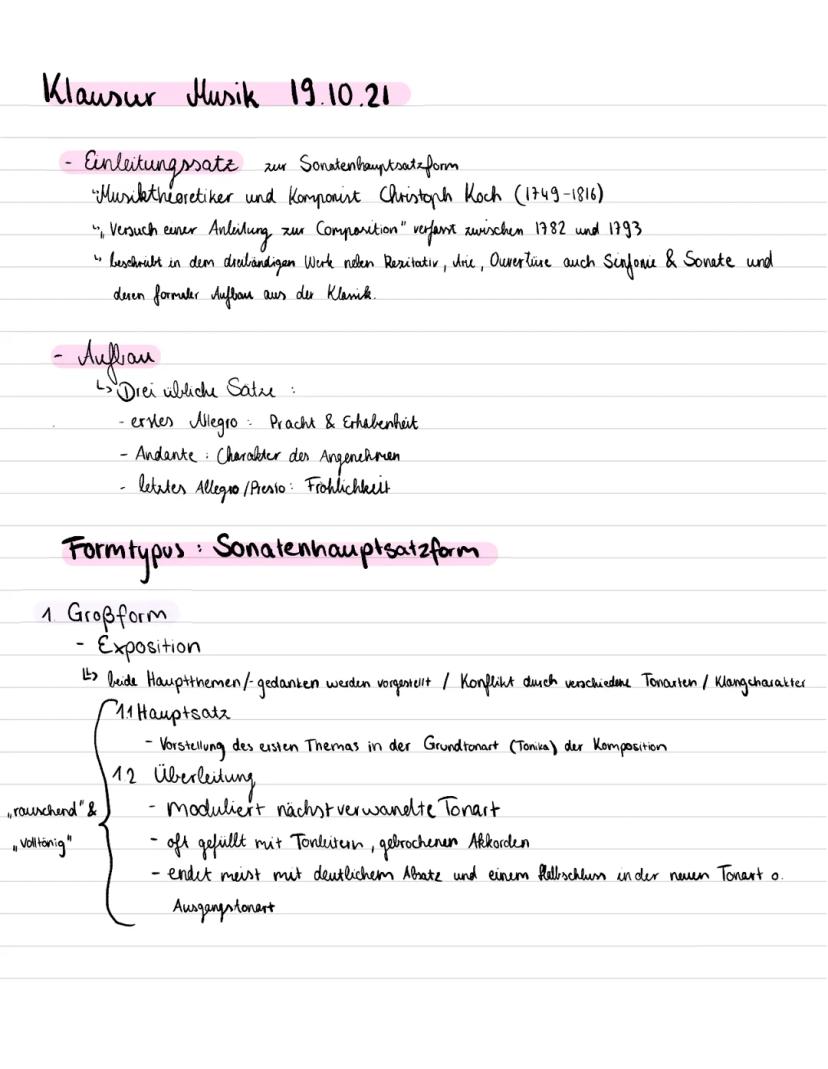 Klausur Musik 19.10.21
- Einleitungssatz zur Sonatenhauptsatzform
↳ Musiktheoretiker und Komponist Christoph Koch (1749-1816)
↳ „Versuch einer Anleitung zur Composition" verfasst zwischen 1782 und 1793
↳ beschreibt in dem dreibändigen Werk neben Rezitativ, Arie, Ouvertüre auch Sinfonie & Sonate und
deren formaler Aufbau aus der Klassik.
- Aufbau
↳ ① Drei übliche Sätze :
- erstes Allegro : Pracht & Erhabenheit
- Andante : Charakter des Angenehmen
- letztes Allegro /Presto : Fröhlichkeit
Formtypus : Sonatenhauptsatzform
1 Großform
- Exposition
↳ beide Hauptthemen/-gedanken werden vorgestellt / Konflikt durch verschiedene Tonarten / Klangcharakter
1.1 Hauptsatz
- Vorstellung des ersten Themas in der Grundtonart (Tonika) der Komposition
1.2 Überleitung
„rauschend" &
- moduliert nächstverwandte Tonart
„volltönig"
- oft gefüllt mit Tonleitern, gebrochenen Akkorden
- endet meist mit deutlichem Absatz und einem Halbschluss in der neuen Tonart o.
Ausgangstonart